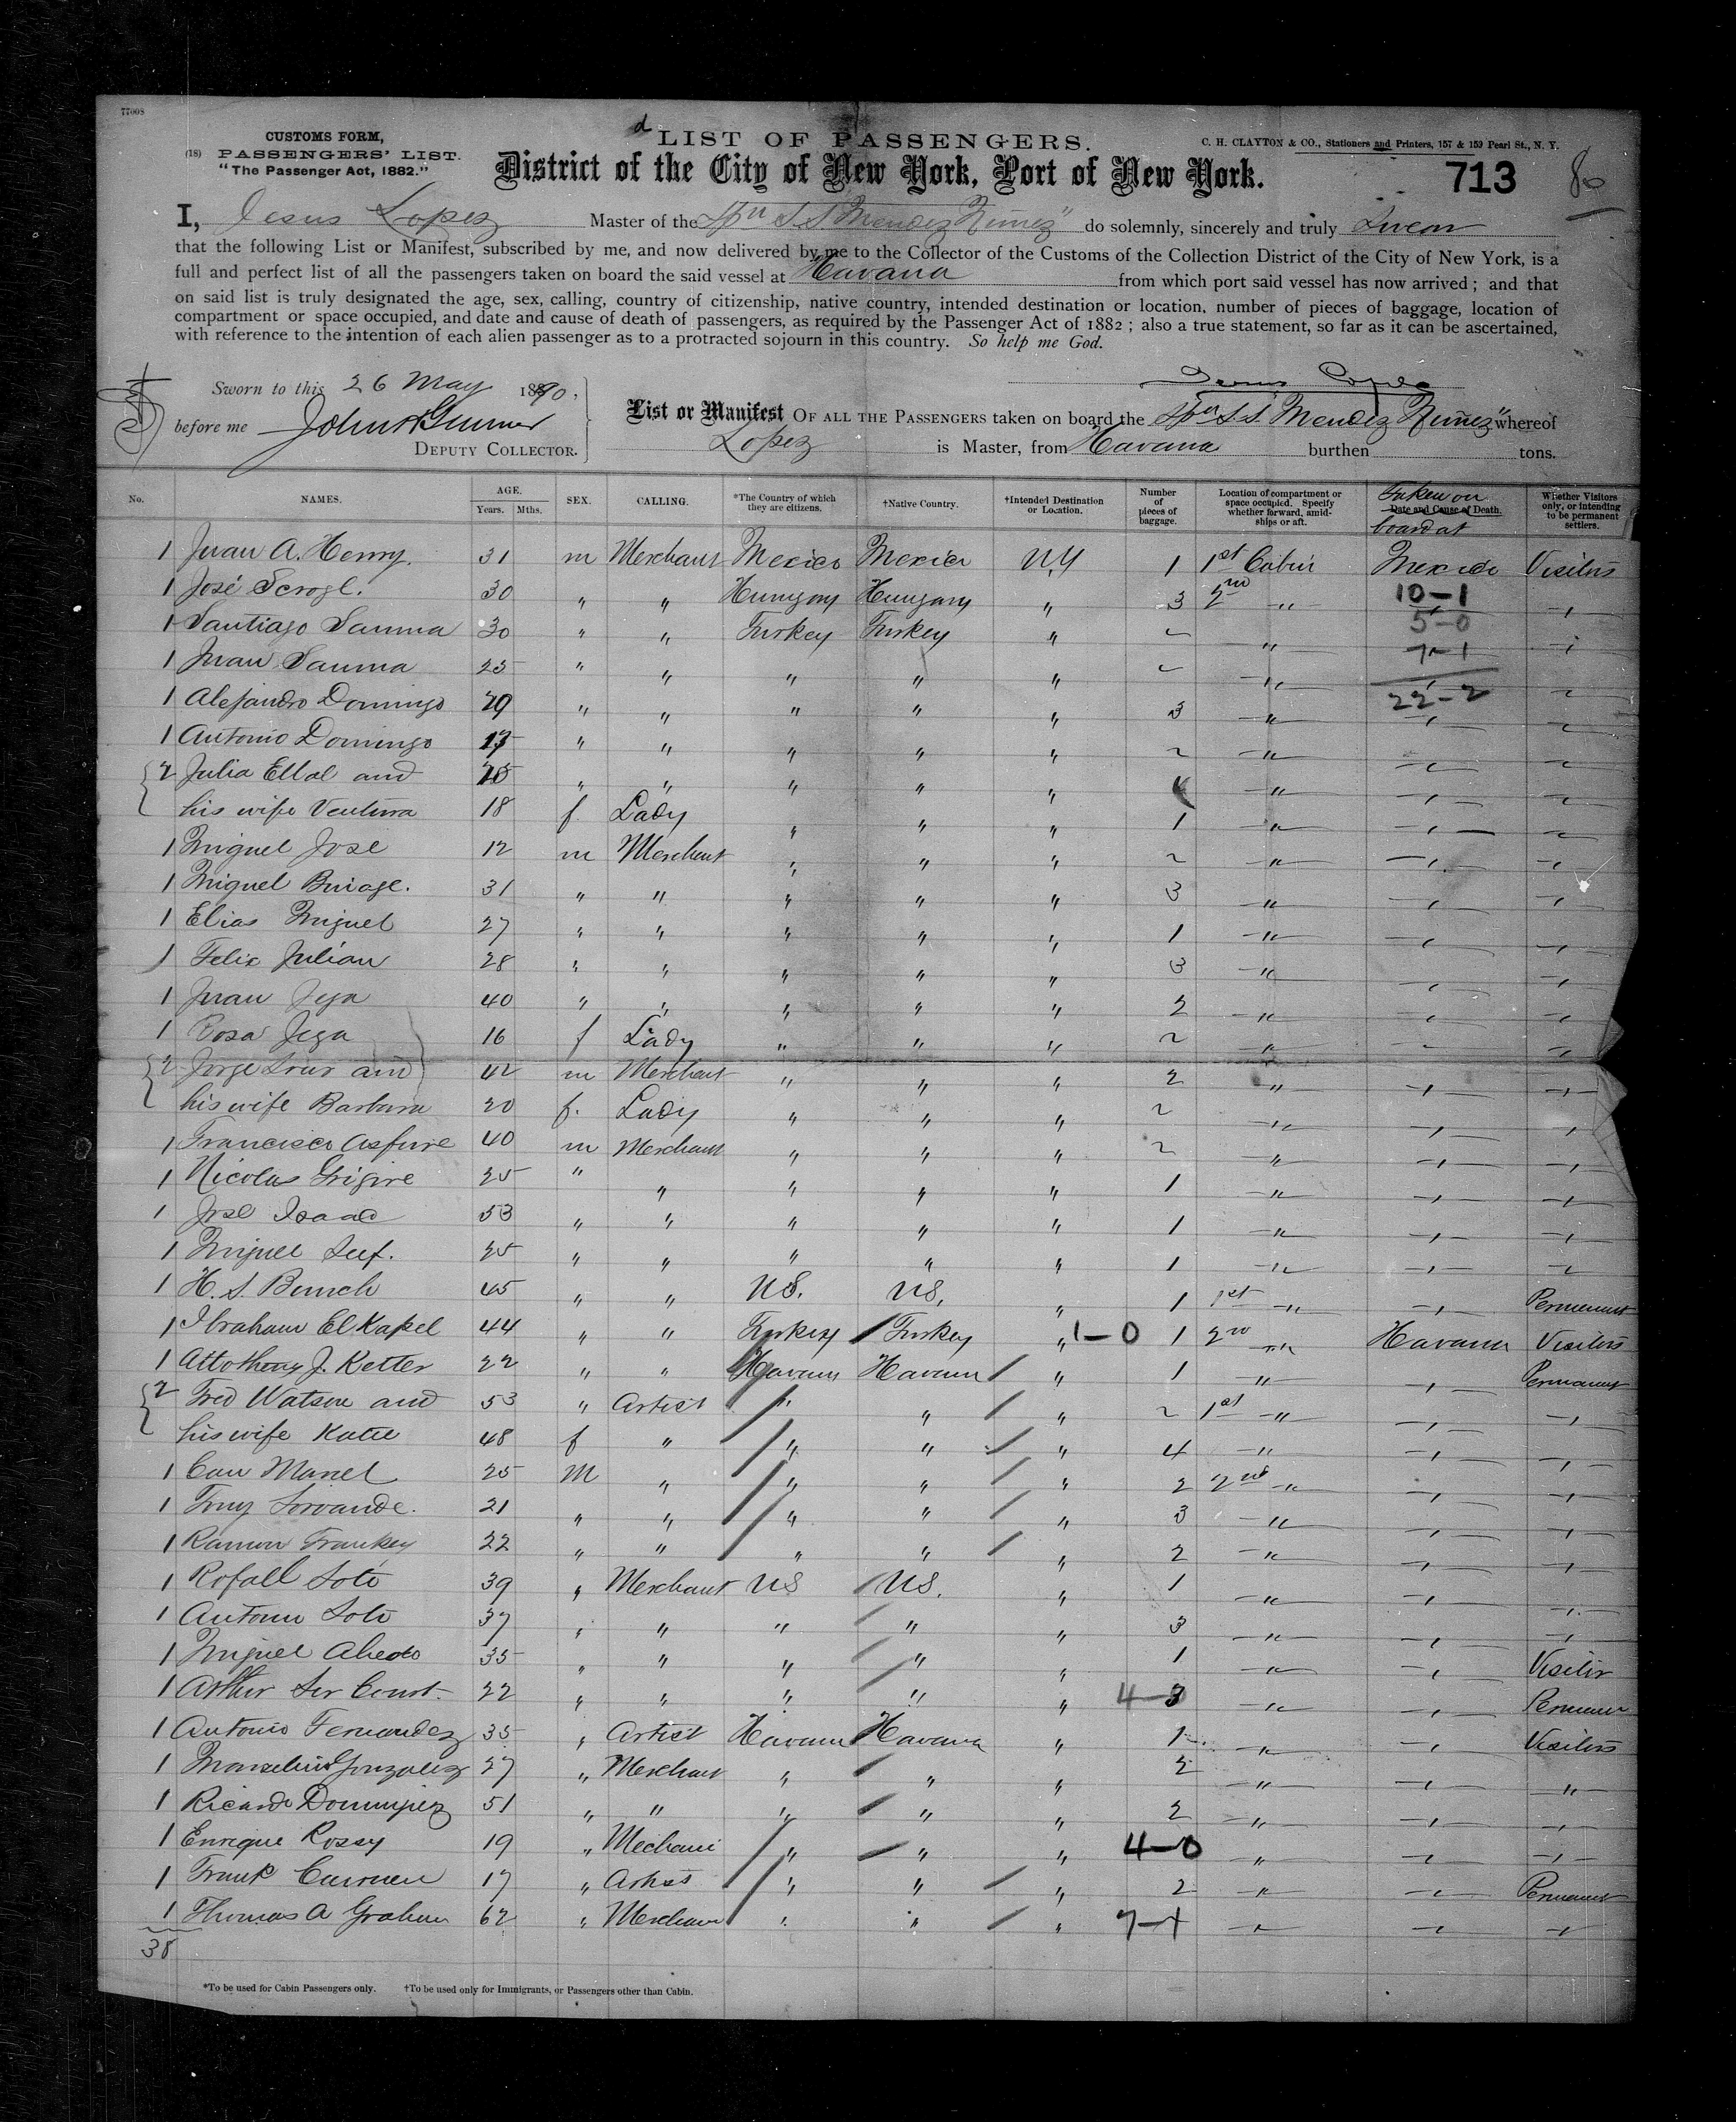 77008
CUSTOMS FORM,
(18) PASSENGERS' LIST.
"The Passenger Act, 1882."
LIST OF PASSENGERS.
C. H. CLAYTON & CO., Stationers and Printers, 157 & 159 Pearl St., N. Y.
District of the City of New York, Port of New York.
713
80
I, Jesus Lopez Master of the Spn S.S. "Mendez Nuñez" do solemnly, sincerely and truly Swear
that the following List or Manifest, subscribed by me, and now delivered by me to the Collector of the Customs of the Collection District of the City of New York, is a
full and perfect list of all the passengers taken on board the said vessel at Havana from which port said vessel has now arrived ; and that
on said list is truly designated the age, sex, calling, country of citizenship, native country, intended destination or location, number of pieces of baggage, location of
compartment or space occupied, and date and cause of death of passengers, as required by the Passenger Act of 1882 ; also a true statement, so far as it can be ascertained,
with reference to the intention of each alien passenger as to a protracted sojourn in this country. So help me God.
Sworn to this 26 May 1890,
before me John
DEPUTY COLLECTOR.
Jesus Lopez
List or Manifest OF ALL THE PASSENGERS taken on board the Spn S.S. "Mendez Nuñez" whereof
Lopez is Master, from Havana burthen tons.
No. NAMES. AGE. Years. Mths. SEX. CALLING. *The Country of which they are citizens. †Native Country. †Intended Destination or Location. Number of pieces of baggage. Location of compartment or space occupied. Specify whether forward, amidships or aft. Date and Cause of Death. Taken on board at Whether Visitors only, or intending to be permanent settlers.
1 Juan A. Henry. 31 m Merchant Mexico Mexico N.Y 1 1st Cabin Mexico Visitors
1 José Scrogl. 30 " " Hungary Hungary " 3 2nd " 10-1 "
1 Santiago Sauma 30 " " Turkey Turkey " 2 " 5-0 "
1 Juan Sauma 25 " " " " " 2 " 7-1 "
1 Alejandro Domingo 29 " " " " " 3 " 22-2 "
1 Antonio Domingo 13 " " " " " 2 " " "
2 Julia Ellal and " " " " " " " "
his wife Ventura 18 f. Lady " " " 1 " " "
1 Miguel José 12 m Merchant " " " 2 " " "
1 Miguel Buiage. 31 " " " " " 3 " " "
1 Elias Miguel 27 " " " " " 1 " " "
1 Felix Julian 28 " " " " " 3 " " "
1 Juan Jega 40 " " " " " 2 " " "
1 Rosa Jega 16 f Lady " " " 2 " " "
2 Jorge and 42 m Merchant " " " 2 " " "
his wife Barbara 20 f. Lady " " " 2 " " "
1 Francisco Asfure 40 m Merchant " " " 2 " " "
1 Nicolas Grigire 25 " " " " " 1 " " "
1 José Isaac 53 " " " " " 1 " " "
1 Miguel Seef. 25 " " " " " 1 " " "
1 H. S. Bunch 45 " " U.S. U.S. " 1 1st " " Permanent
1 Ibraham El Kapel 44 " " Turkey Turkey " 1-0 1 2nd " Havana Visitors
1 J. Ketter 22 " " Havana Havana " 1 " " Permanent
2 Fred Watson and 53 " Artist " " " 2 1st " " "
his wife Katie 48 f " " " " 4 " " "
1 Manel 25 M " " " " 2 2nd " " "
1 Tony 21 " " " " " 3 " " "
1 Ramon Frankey 22 " " " " " 2 " " "
1 Rofall Soto 39 " Merchant US U.S. " 1 " " "
1 Antonn Soto 37 " " " " " 3 " " "
1 Miguel 35 " " " " " 1 " " Visitor
1 Arthur 22 " " " " " 4-3 " " Permanen
1 Antonio Fernandez 35 " Artist Havana Havana " 1 " " Visitors
1 Gonzalez 27 " Merchant " " " 2 " " "
1 Ricardo Dominjuez 51 " " " " " 2 " " "
1 Enrique Rossy 19 " Mechanic " " " 4-0 " " "
1 Frank 17 " Artist " " " 2 " " Permanent
1 Thomas A Graham 62 " Merchant " " " 7-1 " " "
38
*To be used for Cabin Passengers only. †To be used only for Immigrants, or Passengers other than Cabin.